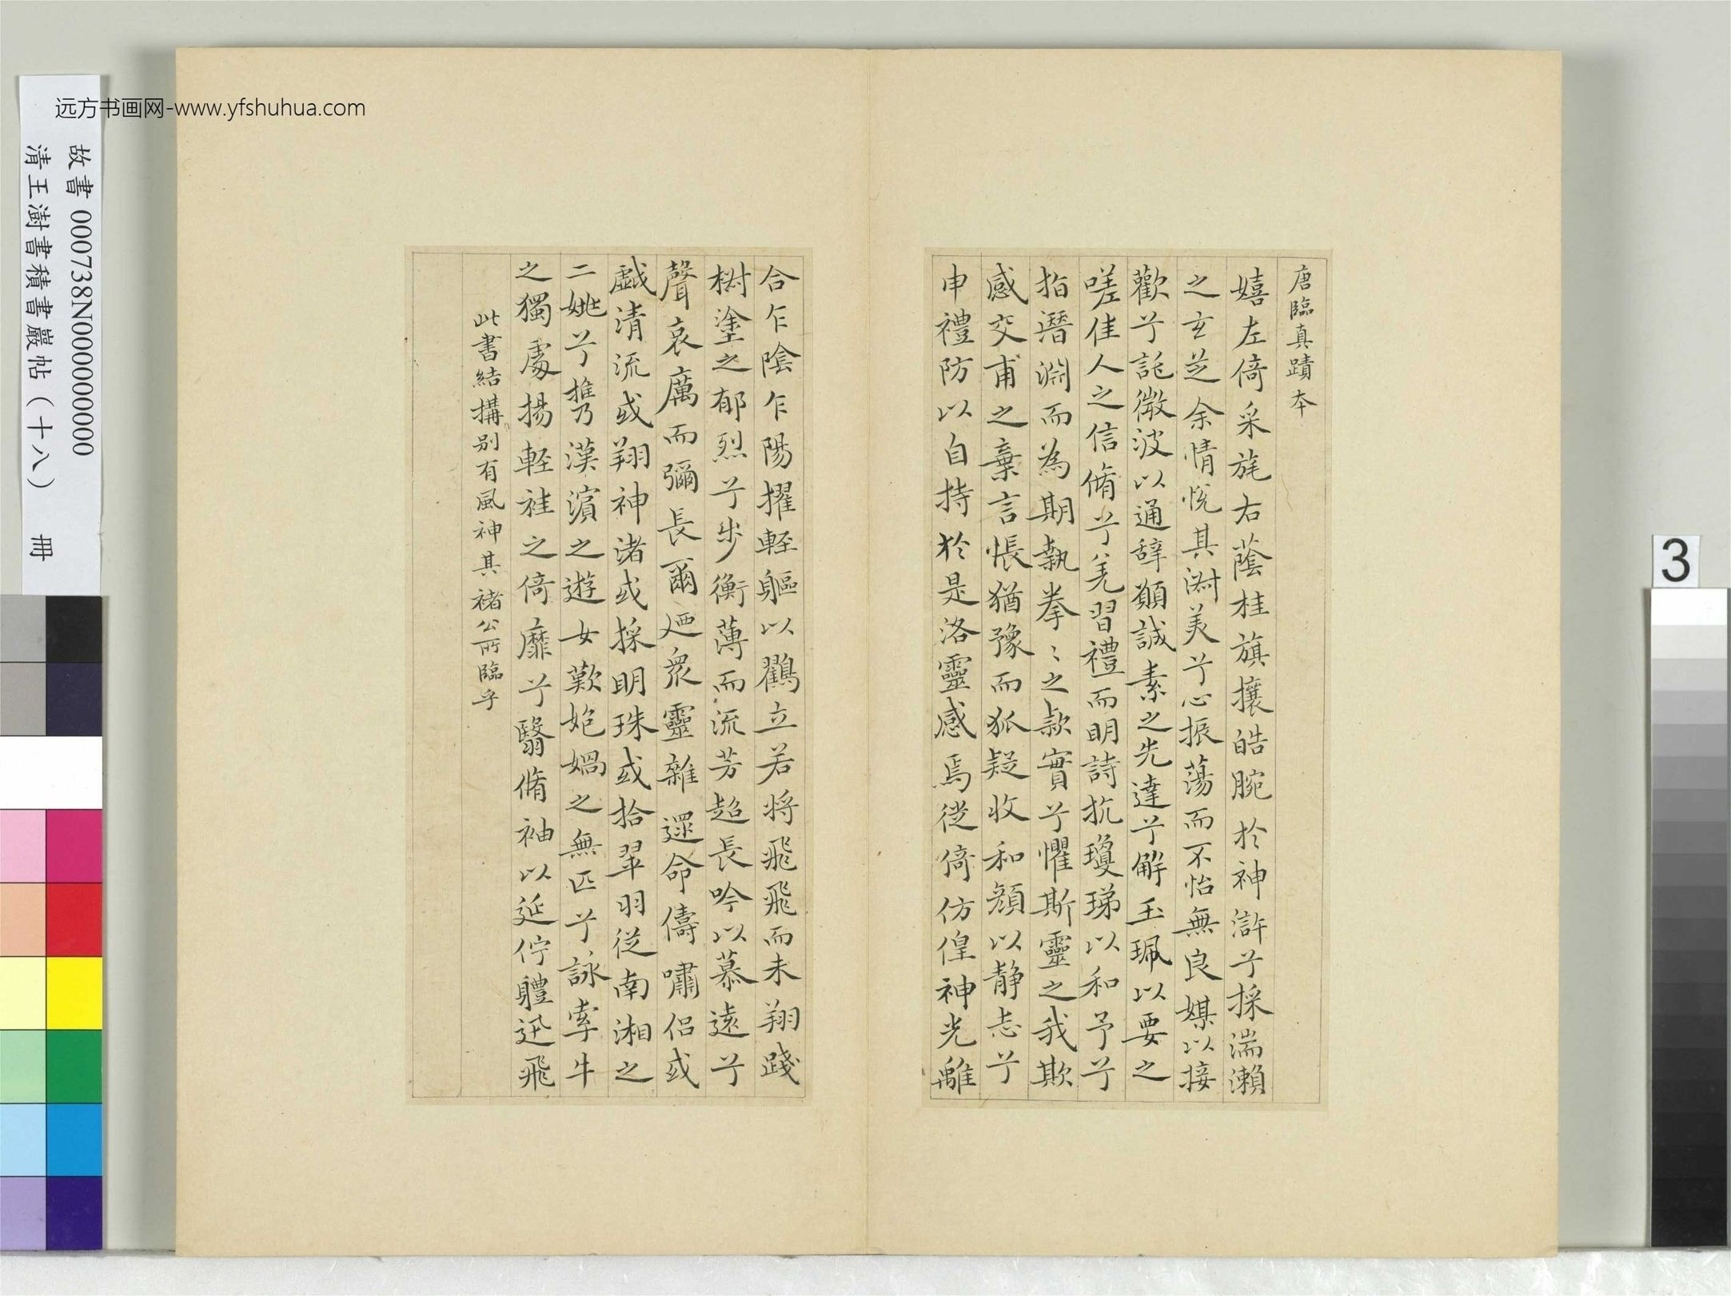 唐臨真蹟本
嬉左倚采旄右蔭桂旗攘皓腕於神滸兮採湍瀨
之玄芝余情悅其淑美兮心振蕩而不怡無良媒以接
歡兮託微波以通辭願誠素之先達兮解玉珮以要之
嗟佳人之信脩兮羌習禮而明詩抗瓊珶以和予兮
指潛淵而為期執拳〻之款實兮懼斯靈之我欺
感交甫之棄言悵猶豫而狐疑收和顏以静志兮
申禮防以自持於是洛靈感焉徙倚仿偟神光離
合乍陰乍陽擢輕軀以鸖立若將飛飛而未翔踐
椒塗之郁烈兮步衡薄而流芳超長吟以慕遠兮
聲哀厲而彌長爾迺衆靈雜遝命儔嘯侶或
戲清流或翔神渚或採明珠或拾翠羽從南湘之
二姚兮攜漢濱之遊女歎㚿媧之無匹兮詠牽牛
之獨處揚輕袿之倚靡兮翳脩袖以延佇體迅飛
此書結搆别有風神其褚公所臨乎
远方书画网-www.yfshuhua.com
故書 000738N000000000
清王澍書積書巖帖（十八） 冊
3